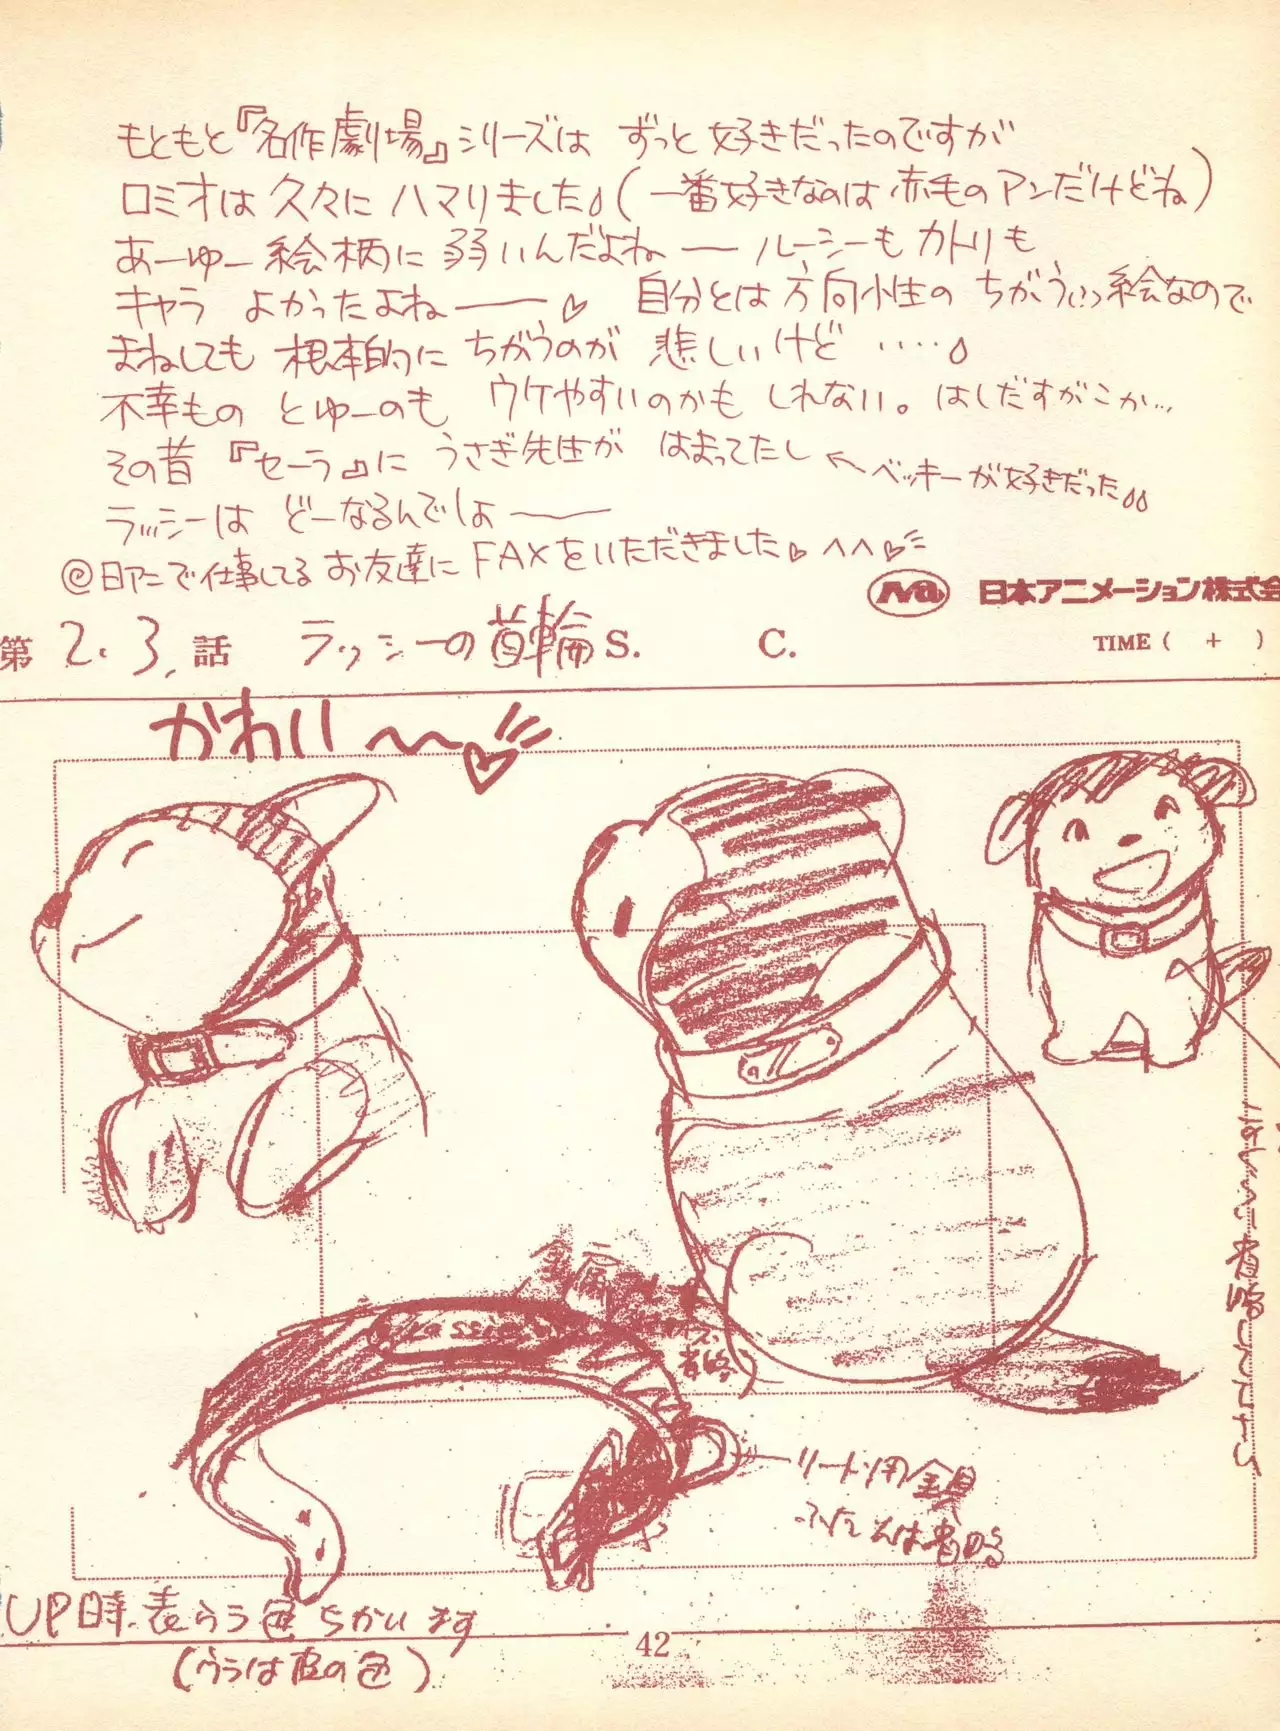 もともと『名作劇場』シリーズは ずっと好きだったのですが
ロミオは久々に ハマりました(一番好きなのは赤毛のアンだけどね)
あーゆー絵柄に 弱いんだよねー ルーシーもカトリも
キャラ よかったよねー♡ 自分とは方向性の ちがう絵なので
まねしても 根本的に ちがうのが 悲しいけど ‥‥
不幸もの とゆーのも ウケやすいのかも しれない。はしだすがこか…
その昔 『セーラ』に うさぎ先生が はまってたし ←ベッキーが好きだった
ラッシーは どーなるんでしょー
@日アニで仕事してるお友達に FAXをいただきました♡ ^^♡
Na 日本アニメーション株式会
第2.3.話 ラッシーの首輪 S. C. TIME ( + )
かわい〜♡
金属
Lassie
省略)
リード用金具
ふだんは省略
UP時.表うら色ちがいます
(ウラは皮の色)
42